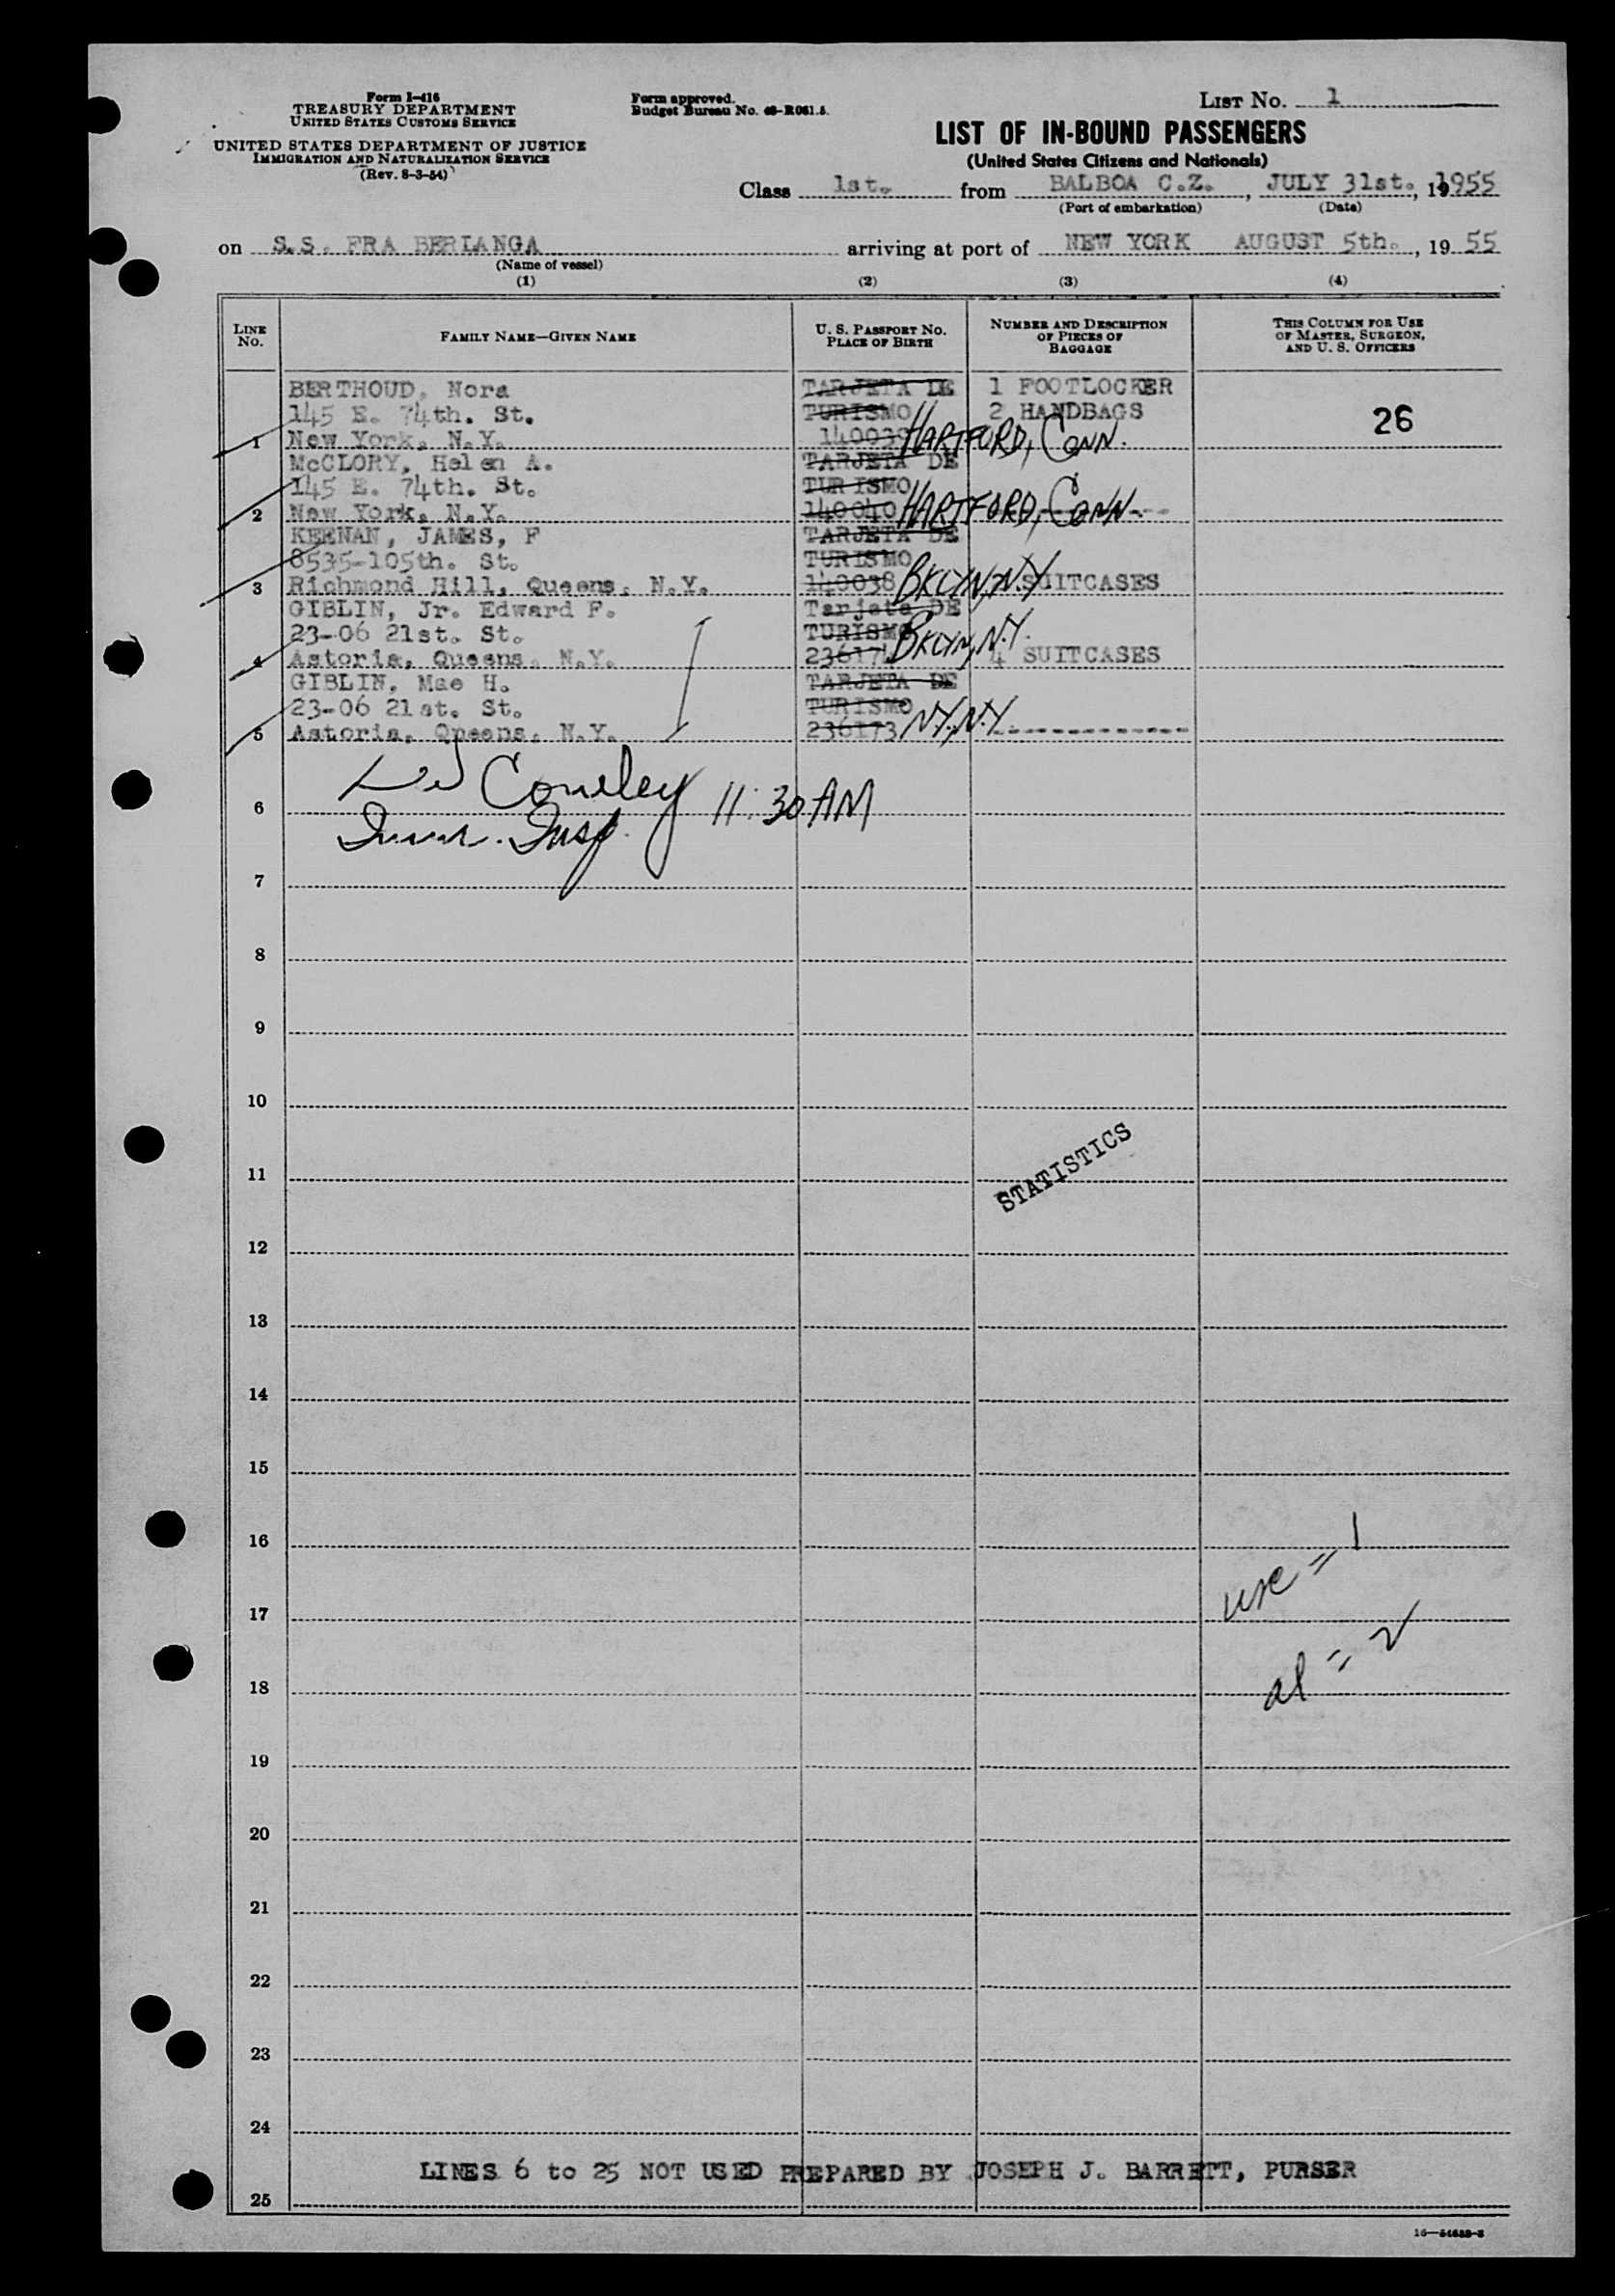 Form I-416
TREASURY DEPARTMENT
UNITED STATES CUSTOMS SERVICE
UNITED STATES DEPARTMENT OF JUSTICE
IMMIGRATION AND NATURALIZATION SERVICE
(Rev. 8-3-54)
Form approved.
Budget Bureau No. 43-R081.5.
LIST NO. 1
LIST OF IN-BOUND PASSENGERS
(United States Citizens and Nationals)
Class 1st. from BALBOA C.Z., JULY 31st., 1955
(Port of embarkation) (Date)
on S.S. FRA BERLANGA arriving at port of NEW YORK AUGUST 5th., 19 55
(Name of vessel)
(1) (2) (3) (4)
LINE NO.
FAMILY NAME—GIVEN NAME
U. S. PASSPORT NO.
PLACE OF BIRTH
NUMBER AND DESCRIPTION
OF PIECES OF
BAGGAGE
THIS COLUMN FOR USE
OF MASTER, SURGEON,
AND U. S. OFFICERS
BERTHOUD, Nora TARJETA DE 1 FOOTLOCKER
145 E. 74th. St. TURISMO 2 HANDBAGS 26
1 New York, N.Y. 140039 HARTFORD, CONN.
McCLORY, Helen A. TARJETA DE
145 E. 74th. St. TURISMO
2 New York, N.Y. 140040 HARTFORD, CONN.
KEENAN, JAMES, F TARJETA DE
8535-105th. St. TURISMO
3 Richmond Hill, Queens, N.Y. 140038 BKLYN, N.Y. SUITCASES
GIBLIN, Jr. Edward F. Tarjeta DE
23-06 21st. St. TURISMO
4 Astoria, Queens, N.Y. 236174 BKLYN, N.Y. 4 SUITCASES
GIBLIN, Mae H. TARJETA DE
23-06 21st. St. TURISMO
5 Astoria, Queens, N.Y. 236173 N.Y., N.Y.
11:30 AM
6
Insp.
7
8
9
10
STATISTICS
11
12
13
14
15
16
= 1
17
al = 2
18
19
20
21
22
23
24
LINES 6 to 25 NOT USED PREPARED BY JOSEPH J. BARRETT, PURSER
25